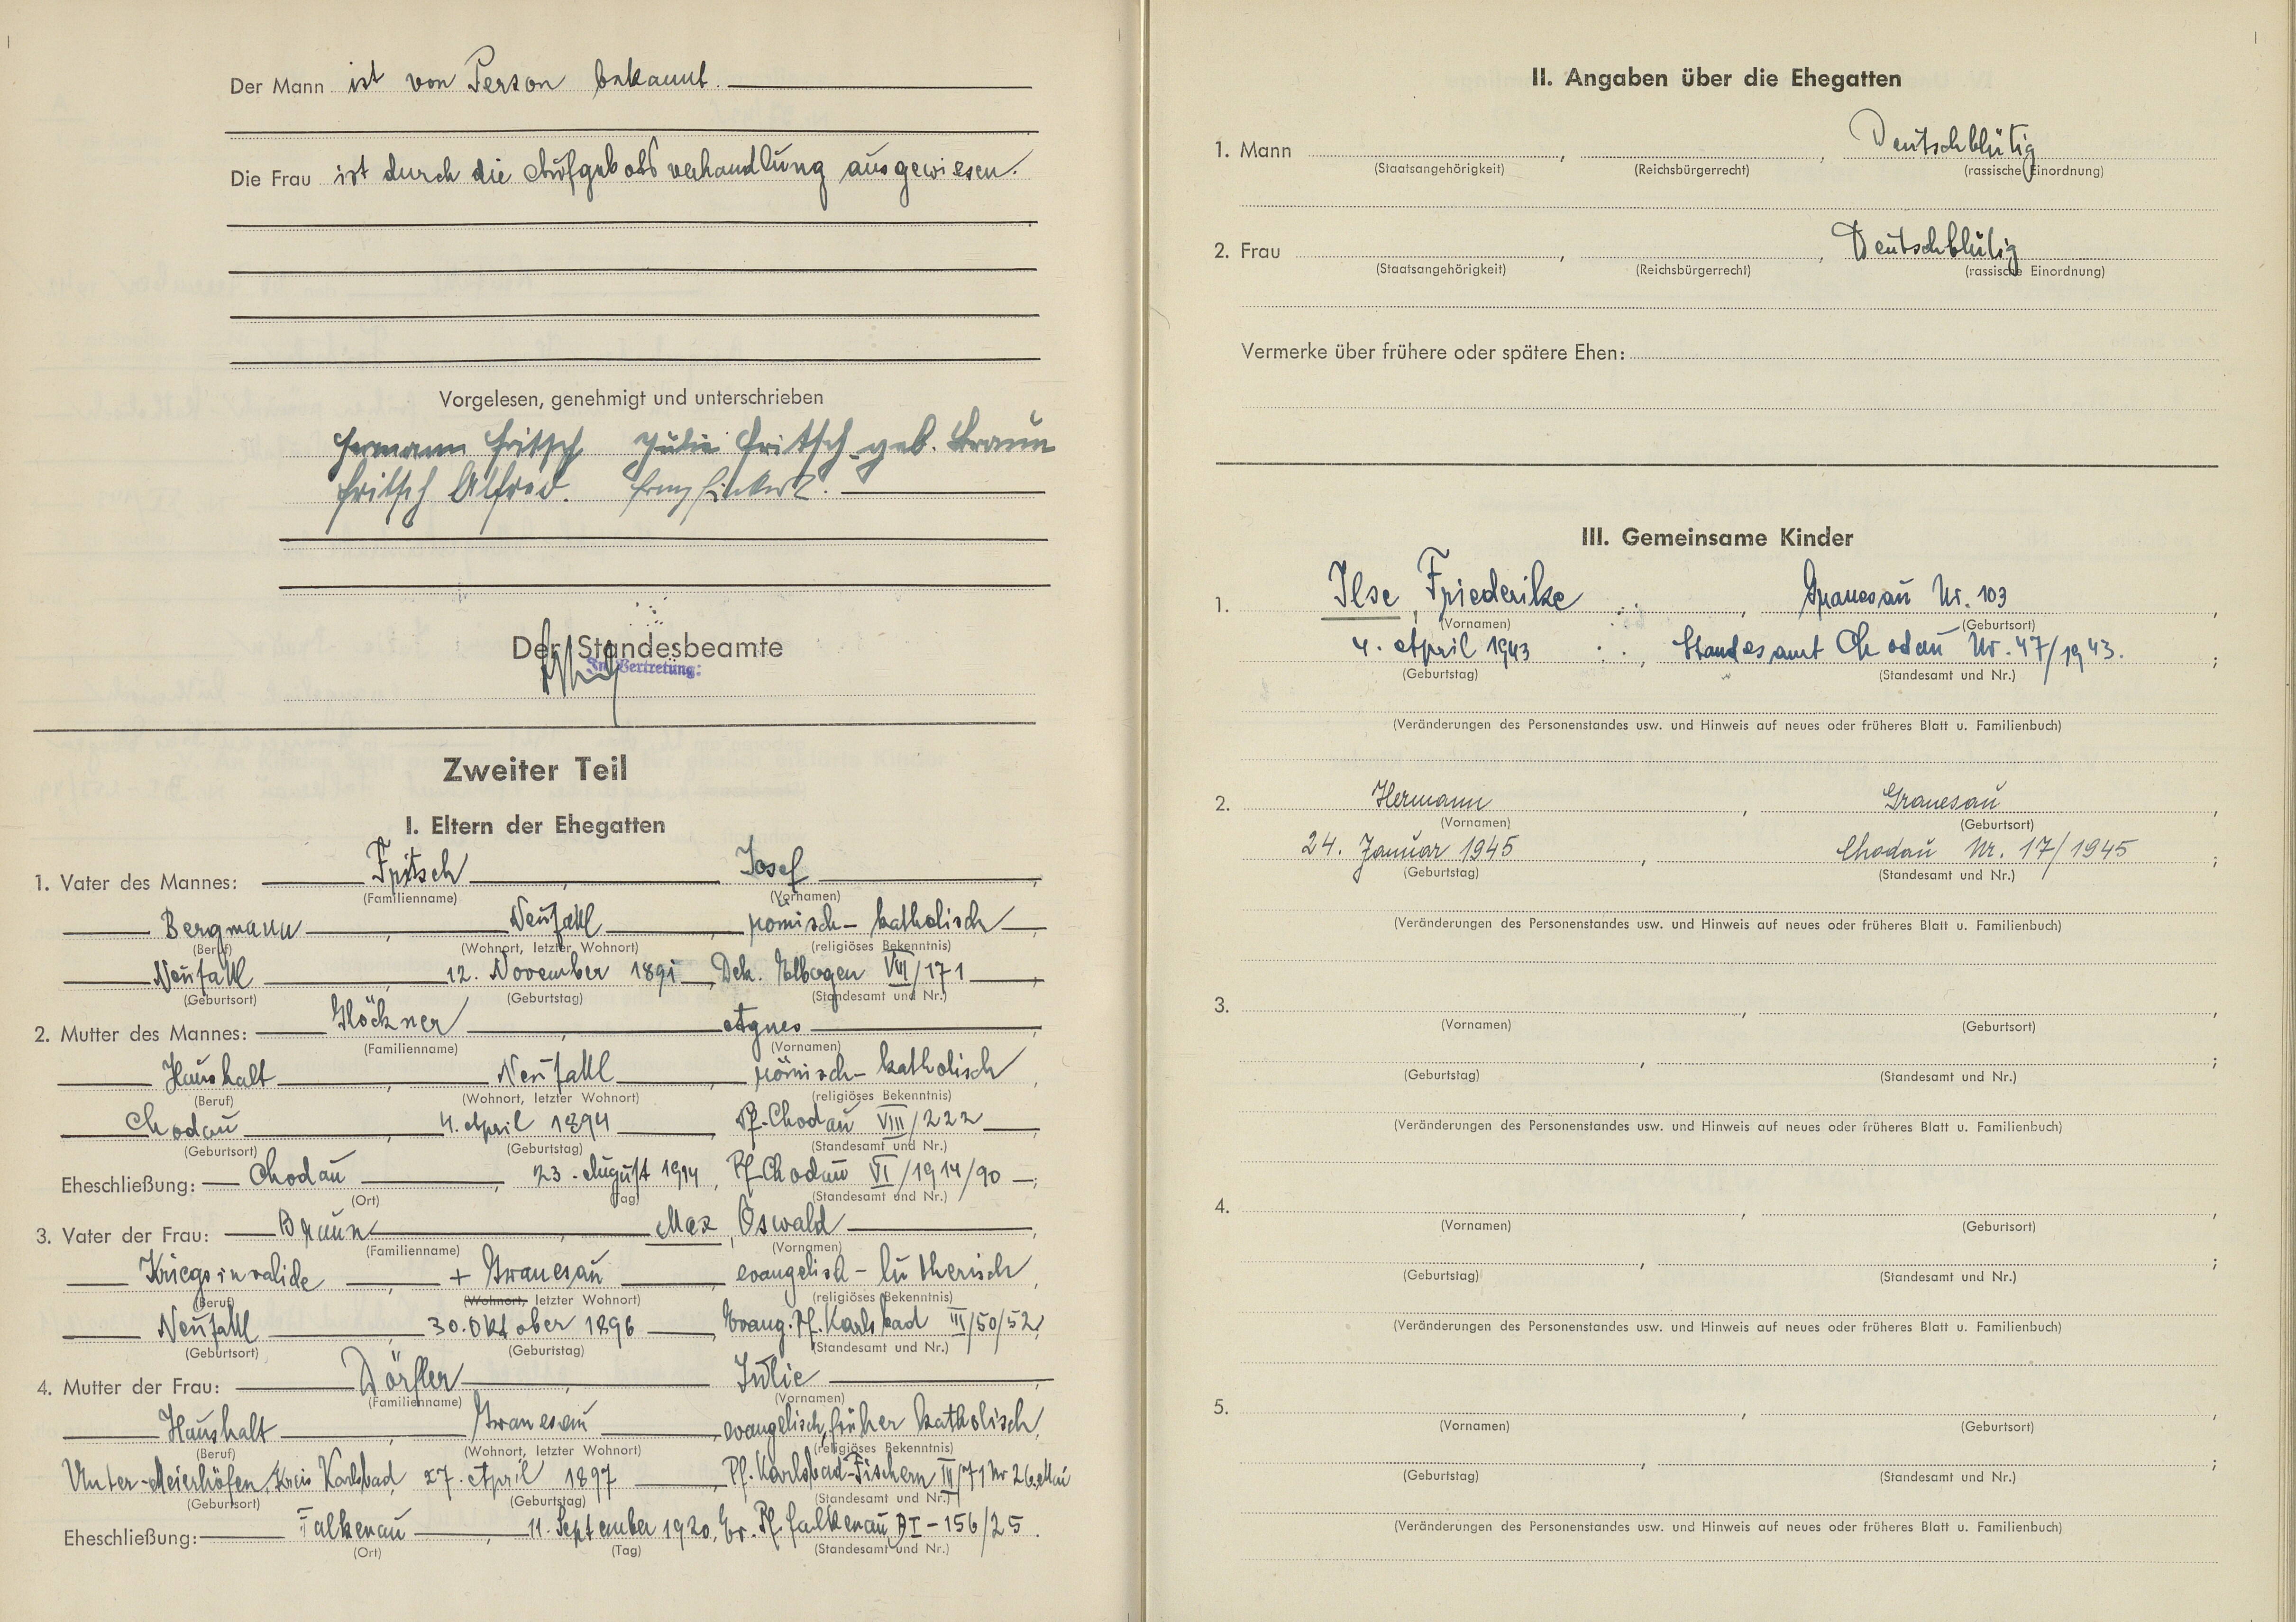 Der Mann ist von Person bekannt.
Die Frau ist durch die Aufgebotsverhandlung ausgewiesen.
Vorgelesen, genehmigt und unterschrieben
Hermann Fritsch Julie Fritsch geb. Braun
Fritsch Alfred.
Der Standesbeamte
In Vertretung:
Zweiter Teil
I. Eltern der Ehegatten
1. Vater des Mannes: Fritsch, Josef,
(Familienname) (Vornamen)
Bergmann, Neusattl, römisch-katholisch,
(Beruf) (Wohnort, letzter Wohnort) (religiöses Bekenntnis)
Neusattl, 12. November 1891, Dek. Elbogen VIII/171,
(Geburtsort) (Geburtstag) (Standesamt und Nr.)
2. Mutter des Mannes: Glöckner, Agnes,
(Familienname) (Vornamen)
Haushalt, Neusattl, römisch-katholisch,
(Beruf) (Wohnort, letzter Wohnort) (religiöses Bekenntnis)
Chodau, 4. April 1894, Pf. Chodau VIII/222,
(Geburtsort) (Geburtstag) (Standesamt und Nr.)
Eheschließung: Chodau, 23. August 1914, Pf. Chodau VI/1914/90;
(Ort) (Tag) (Standesamt und Nr.)
3. Vater der Frau: Braun, Max, Oswald,
(Familienname) (Vornamen)
Kriegsinvalide, + Granesau, evangelisch-lutherisch,
(Beruf) (Wohnort, letzter Wohnort) (religiöses Bekenntnis)
Neusattl, 30. Oktober 1896, Evang. Pf. Karlsbad III/50/52,
(Geburtsort) (Geburtstag) (Standesamt und Nr.)
4. Mutter der Frau: Dörfler, Julie,
(Familienname) (Vornamen)
Haushalt, Granesau, evangelisch, früher katholisch,
(Beruf) (Wohnort, letzter Wohnort) (religiöses Bekenntnis)
Unter-Meierhöfen, Kreis Karlsbad, 27. April 1897, Pf. Karlsbad-Fischern III/71 Nr 26. Mai
(Geburtsort) (Geburtstag) (Standesamt und Nr.)
Eheschließung: Falkenau, 11. September 1920, Ev. Pf. Falkenau, AI-156/25.
(Ort) (Tag) (Standesamt und Nr.)
II. Angaben über die Ehegatten
1. Mann , , Deutschblütig
(Staatsangehörigkeit) (Reichsbürgerrecht) (rassische Einordnung)
2. Frau , , Deutschblütig
(Staatsangehörigkeit) (Reichsbürgerrecht) (rassische Einordnung)
Vermerke über frühere oder spätere Ehen:
III. Gemeinsame Kinder
1. Ilse, Friederike, Granesau Nr. 103,
(Vornamen) (Geburtsort)
4. April 1943, Standesamt Chodau Nr. 47/1943.;
(Geburtstag) (Standesamt und Nr.)
(Veränderungen des Personenstandes usw. und Hinweis auf neues oder früheres Blatt u. Familienbuch)
2. Hermann, Granesau,
(Vornamen) (Geburtsort)
24. Januar 1945, Chodau Nr. 17/1945;
(Geburtstag) (Standesamt und Nr.)
(Veränderungen des Personenstandes usw. und Hinweis auf neues oder früheres Blatt u. Familienbuch)
3. , ,
(Vornamen) (Geburtsort)
, ;
(Geburtstag) (Standesamt und Nr.)
(Veränderungen des Personenstandes usw. und Hinweis auf neues oder früheres Blatt u. Familienbuch)
4. , ,
(Vornamen) (Geburtsort)
, ;
(Geburtstag) (Standesamt und Nr.)
(Veränderungen des Personenstandes usw. und Hinweis auf neues oder früheres Blatt u. Familienbuch)
5. , ,
(Vornamen) (Geburtsort)
, ;
(Geburtstag) (Standesamt und Nr.)
(Veränderungen des Personenstandes usw. und Hinweis auf neues oder früheres Blatt u. Familienbuch)